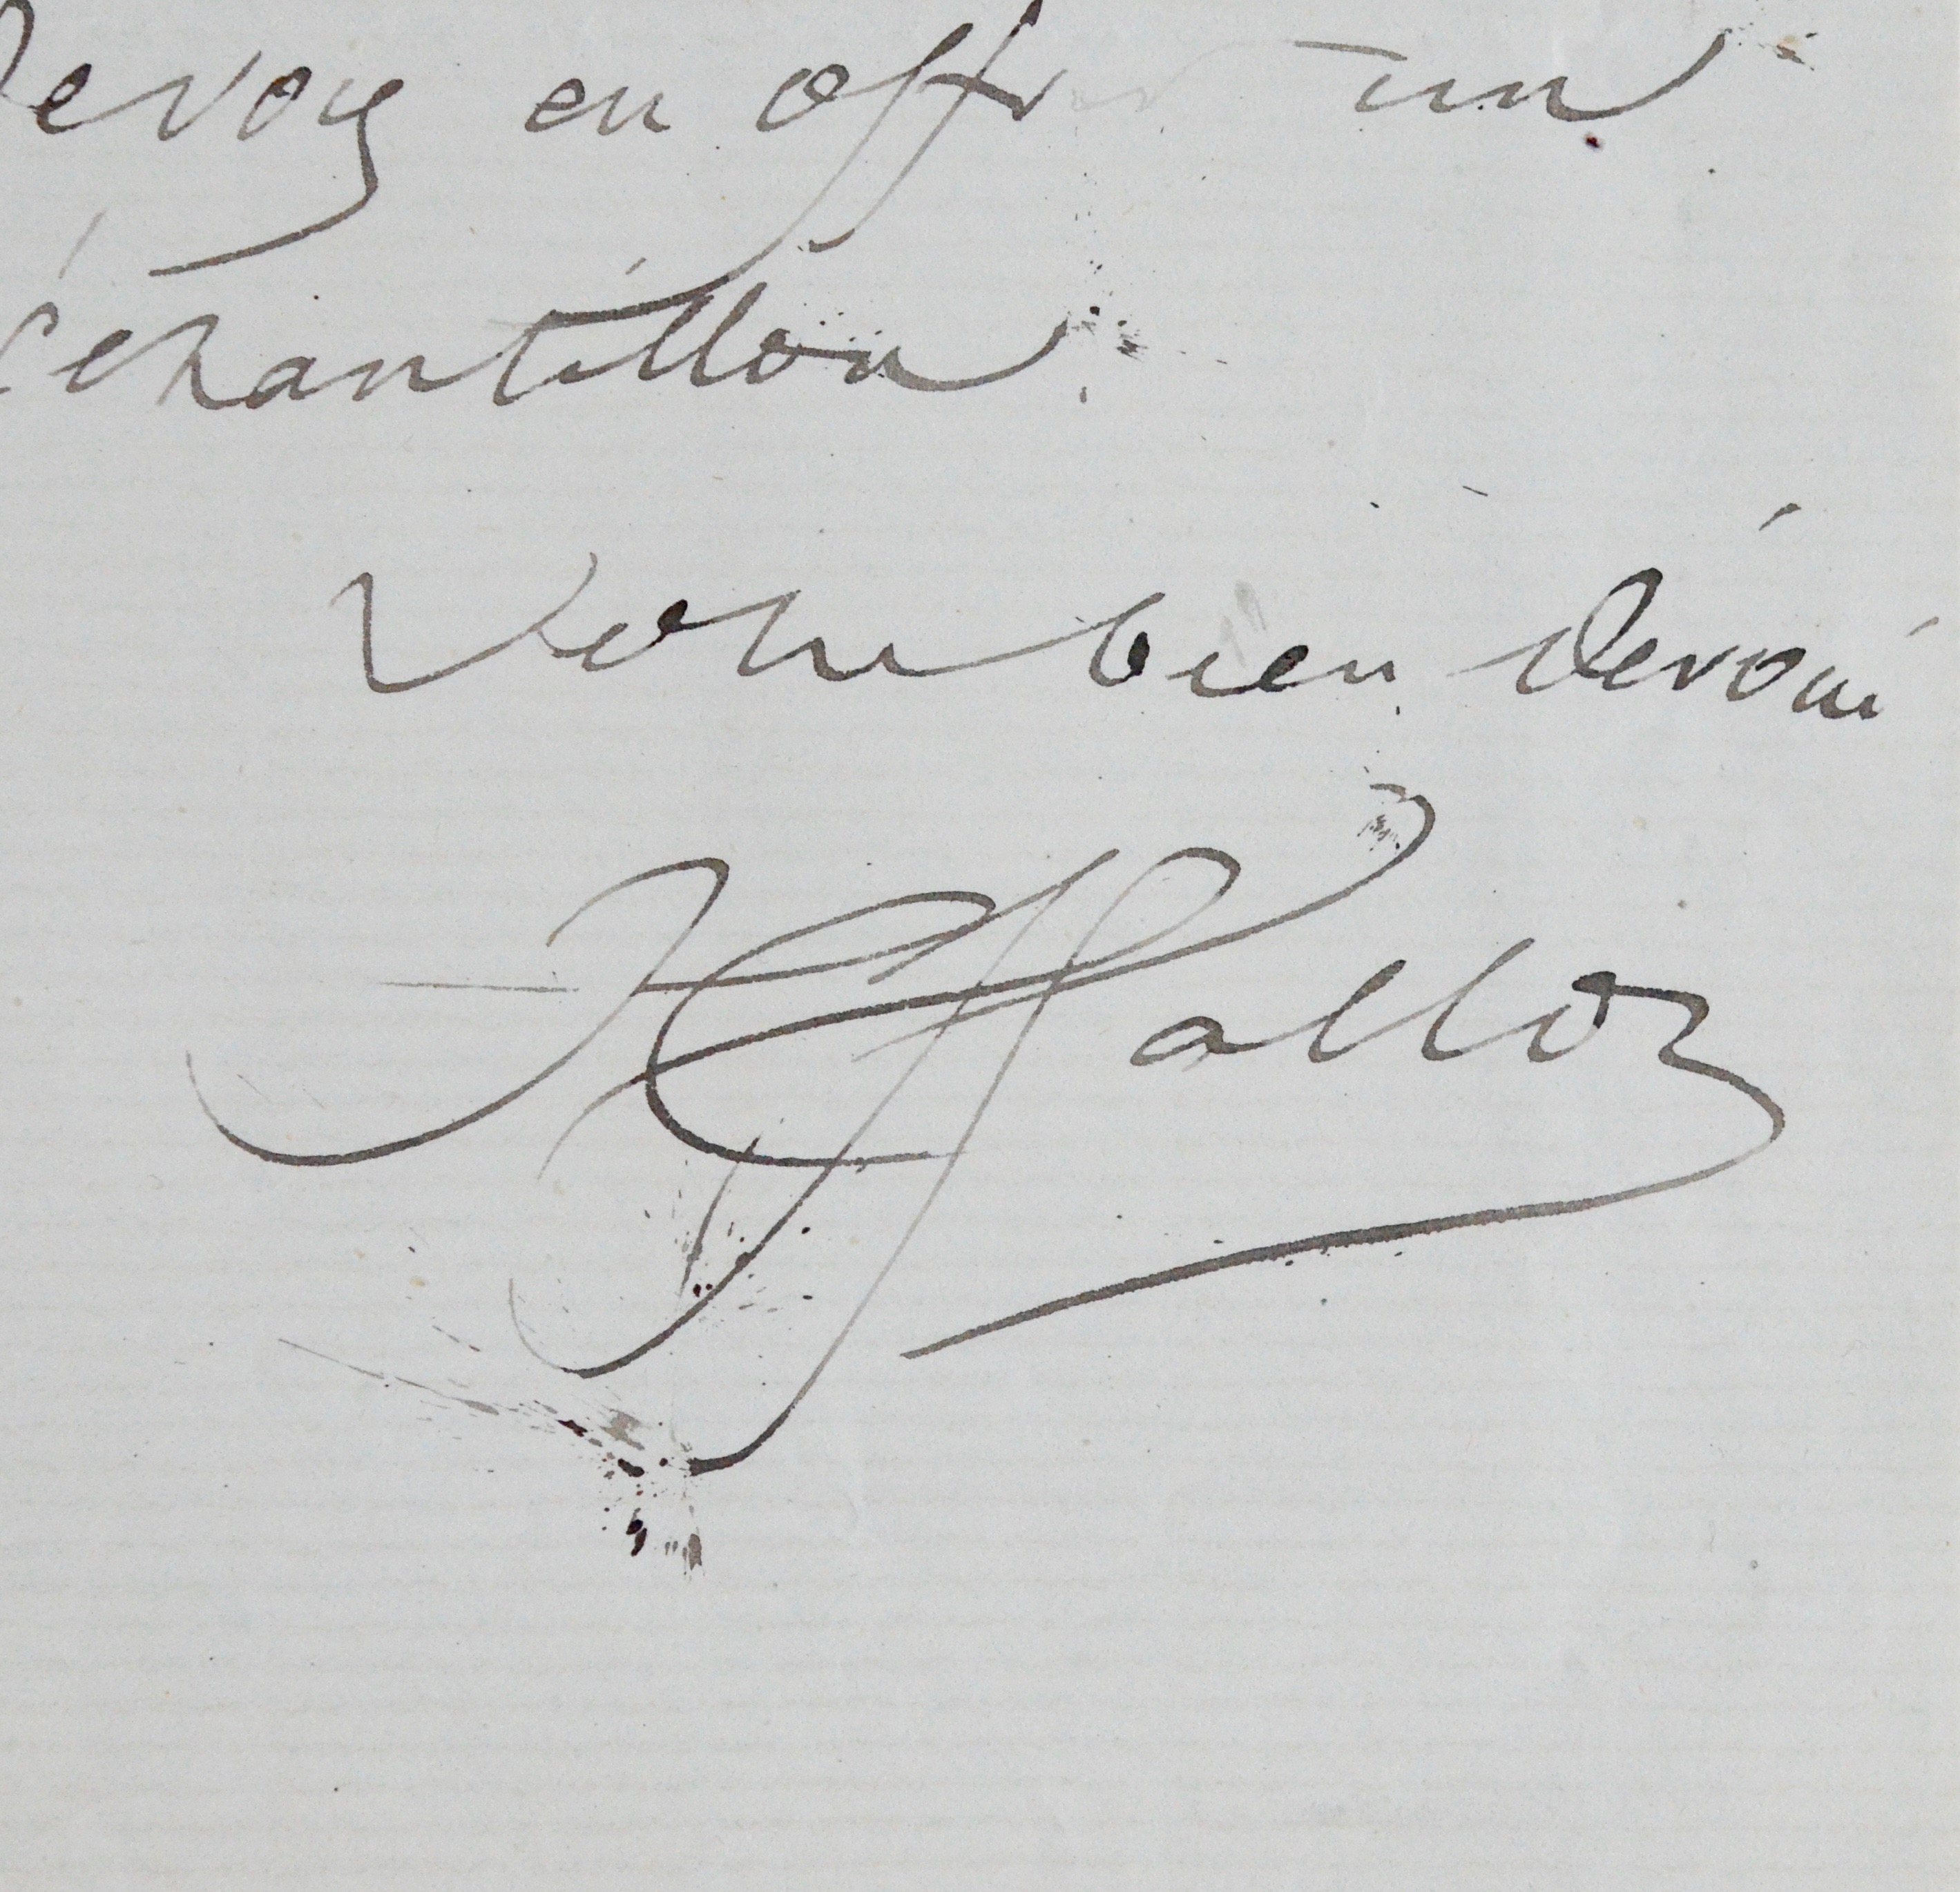 devoir en offrir un
échantillon.
Votre bien dévoué